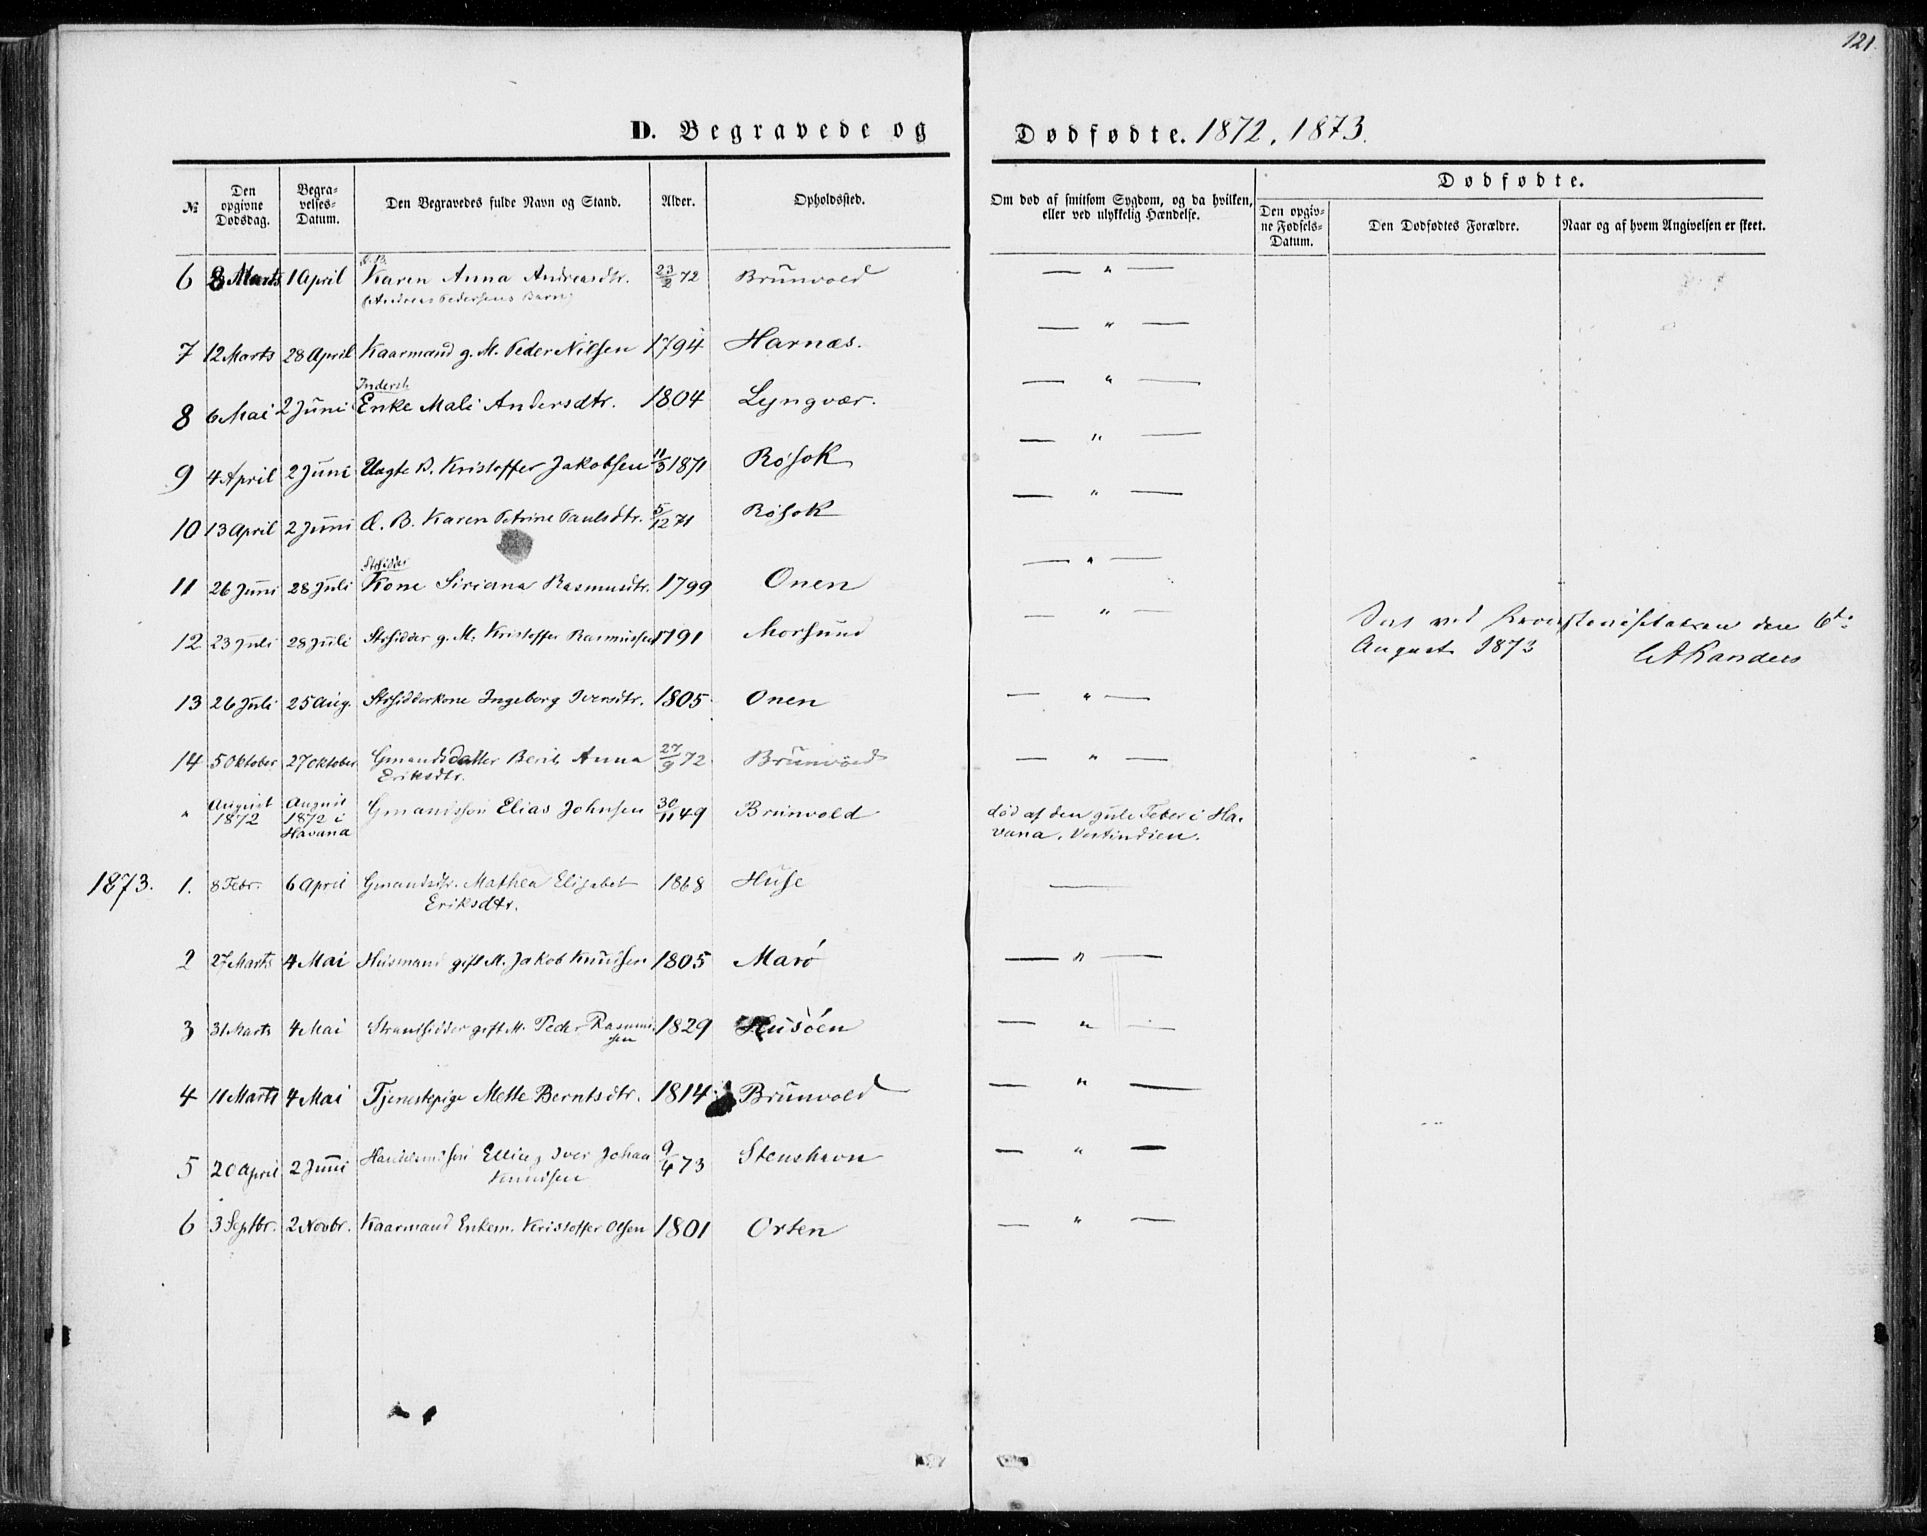 121
D. Begravede og Dødfødte. 1872, 1873.
№ Den opgivne Dødsdag. Begravelses-Datum. Den Begravedes fulde Navn og Stand. Alder. Opholdssted. Om død af smitsom Sygdom, og da hvilken, eller ved ulykkelig Hændelse. Dødfødte.
Den opgivne Fødsels-Datum. Den Dødfødtes Forældre. Naar og af hvem Angivelsen er skeet.
6 8 Marts 1 April Karen Anna Andreasdtr. 23/2 72 Brunvold — " —
(Andreas Pedersens Barn)
7 12 Marts 28 April Kaarmand g. M. Peder Nilsen 1794 Harnæs. — " —
Indersk
8 6 Mai 2 Juni Enke Mali Andersdtr. 1804 Lyngvær. — " —
9 4 April 2 Juni Uægte B. Kristoffer Jakobsen 11/3 1871 Røsok — " —
10 13 April 2 Juni Æ. B. Karen Petrine Paulsdtr. 5/12 71 Røsok — " —
Strsidder
11 26 Juni 28 Juli Kone Siriana Rasmusdtr. 1799 Onen — " —
12 23 Juli 28 Juli Strsidder g. M. Kristoffer Rasmussen 1791 Morsund — " —
Set ved den 6te
August 1873
13 26 Juli 25 Aug. Strsidderkone Ingeborg Iversdtr. 1805 Onen — " —
14 5 Oktober 27 Oktober Gmandsdatter Berit Anna 27/9 72 Brunvold — " —
Eriksdtr.
" August 1872 August 1872 i Havana Gmandssøn Elias Johnsen 30/11 49 Brunvold død af den gule Feber i Ha-
vana, Vestindien.
1873. 1. 8 Febr. 6 April Gmandsdtr. Mathea Elisabet 1868 Huse —
Eriksdtr.
2 27 Marts 4 Mai Husmand gift M. Jakob Knudsen 1805 Marø — " —
3 31 Marts 4 Mai Strandsidder gift M. Peder Rasmus- 1829 Husøen — " —
sen
4 11 Marts 4 Mai Tjenestepige Mette Berntsdtr. 1814 Brunvold — " —
5 20 April 2 Juni Elling Iver Johan 9/4 73 Stenshavn — " —
Knudsen
6 3 Septbr. 2 Novbr. Kaarmand Enkem. Kristoffer Olsen 1801 Orten — " —